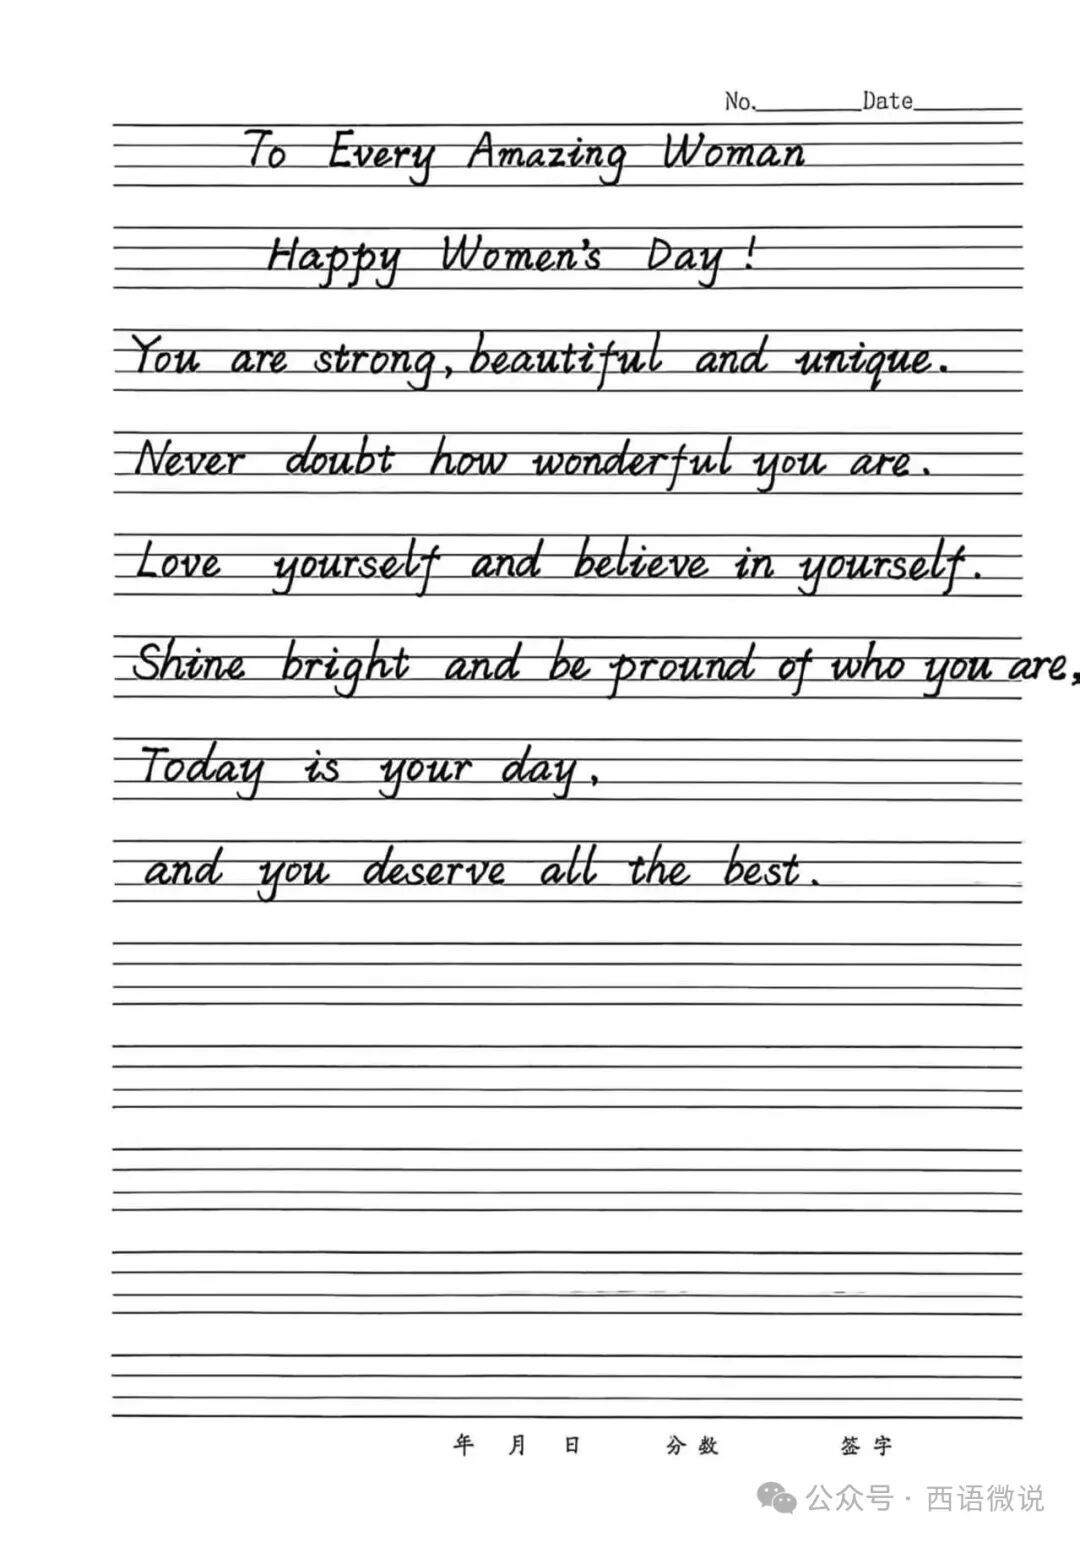 No.________Date________
To Every Amazing Woman
Happy Women's Day!
You are strong, beautiful and unique.
Never doubt how wonderful you are.
Love yourself and believe in yourself.
Shine bright and be pround of who you are,
Today is your day,
and you deserve all the best.
年 月 日 分数 签字
公众号·西语微说